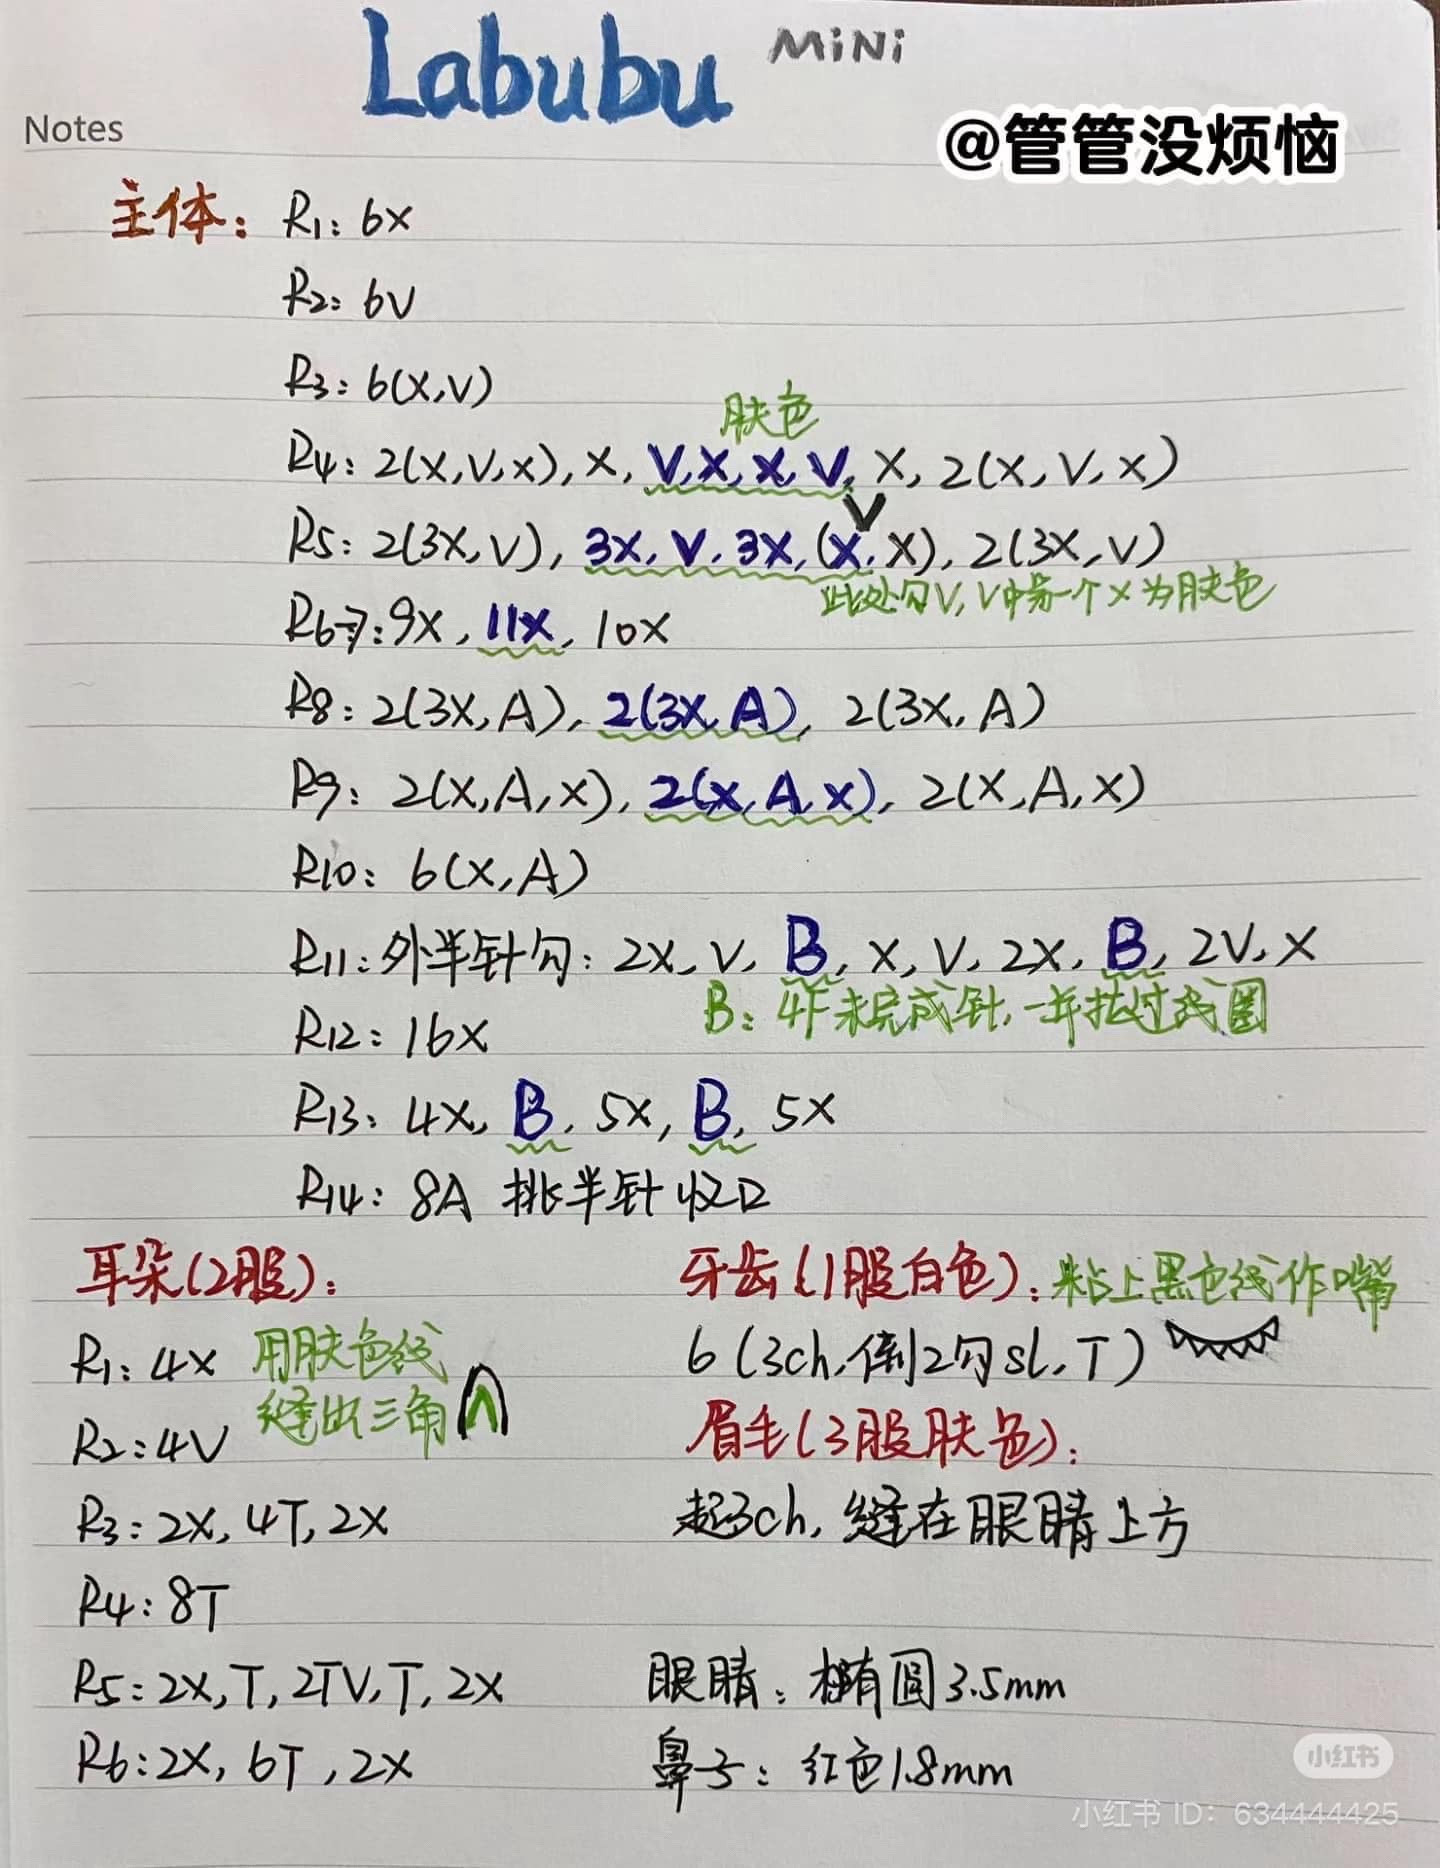 Labubu MiNi
Notes
@管管没烦恼
主体: R1: 6X
R2: 6V
R3: 6(X,V)
肤色
R4: 2(X,V,X), X, V,X,X,V, X, 2(X,V,X)
V
R5: 2(3X,V), 3X,V,3X,(X,X), 2(3X,V)
此处勾V,V中第一个X为肤色
R6-7: 9X, 11X, 10X
R8: 2(3X,A), 2(3X,A), 2(3X,A)
R9: 2(X,A,X), 2(X,A,X), 2(X,A,X)
R10: 6(X,A)
R11: 外半针勾: 2X, V, B, X, V, 2X, B, 2V, X
B: 4F未完成针,一并拔过线圈
R12: 16X
R13: 4X, B, 5X, B, 5X
R14: 8A 挑半针收口
耳朵(2股):
R1: 4X 用肤色线
缝出三角
R2: 4V
R3: 2X, 4T, 2X
R4: 8T
R5: 2X, T, 2TV, T, 2X
R6: 2X, 6T, 2X
牙齿(1股白色): 粘上黑色线作嘴
6(3ch,倒2勾sl,T)
眉毛(3股肤色):
起3ch, 缝在眼睛上方
眼睛: 椭圆3.5mm
鼻子: 红色1.8mm
小红书
小红书 ID: 634444425